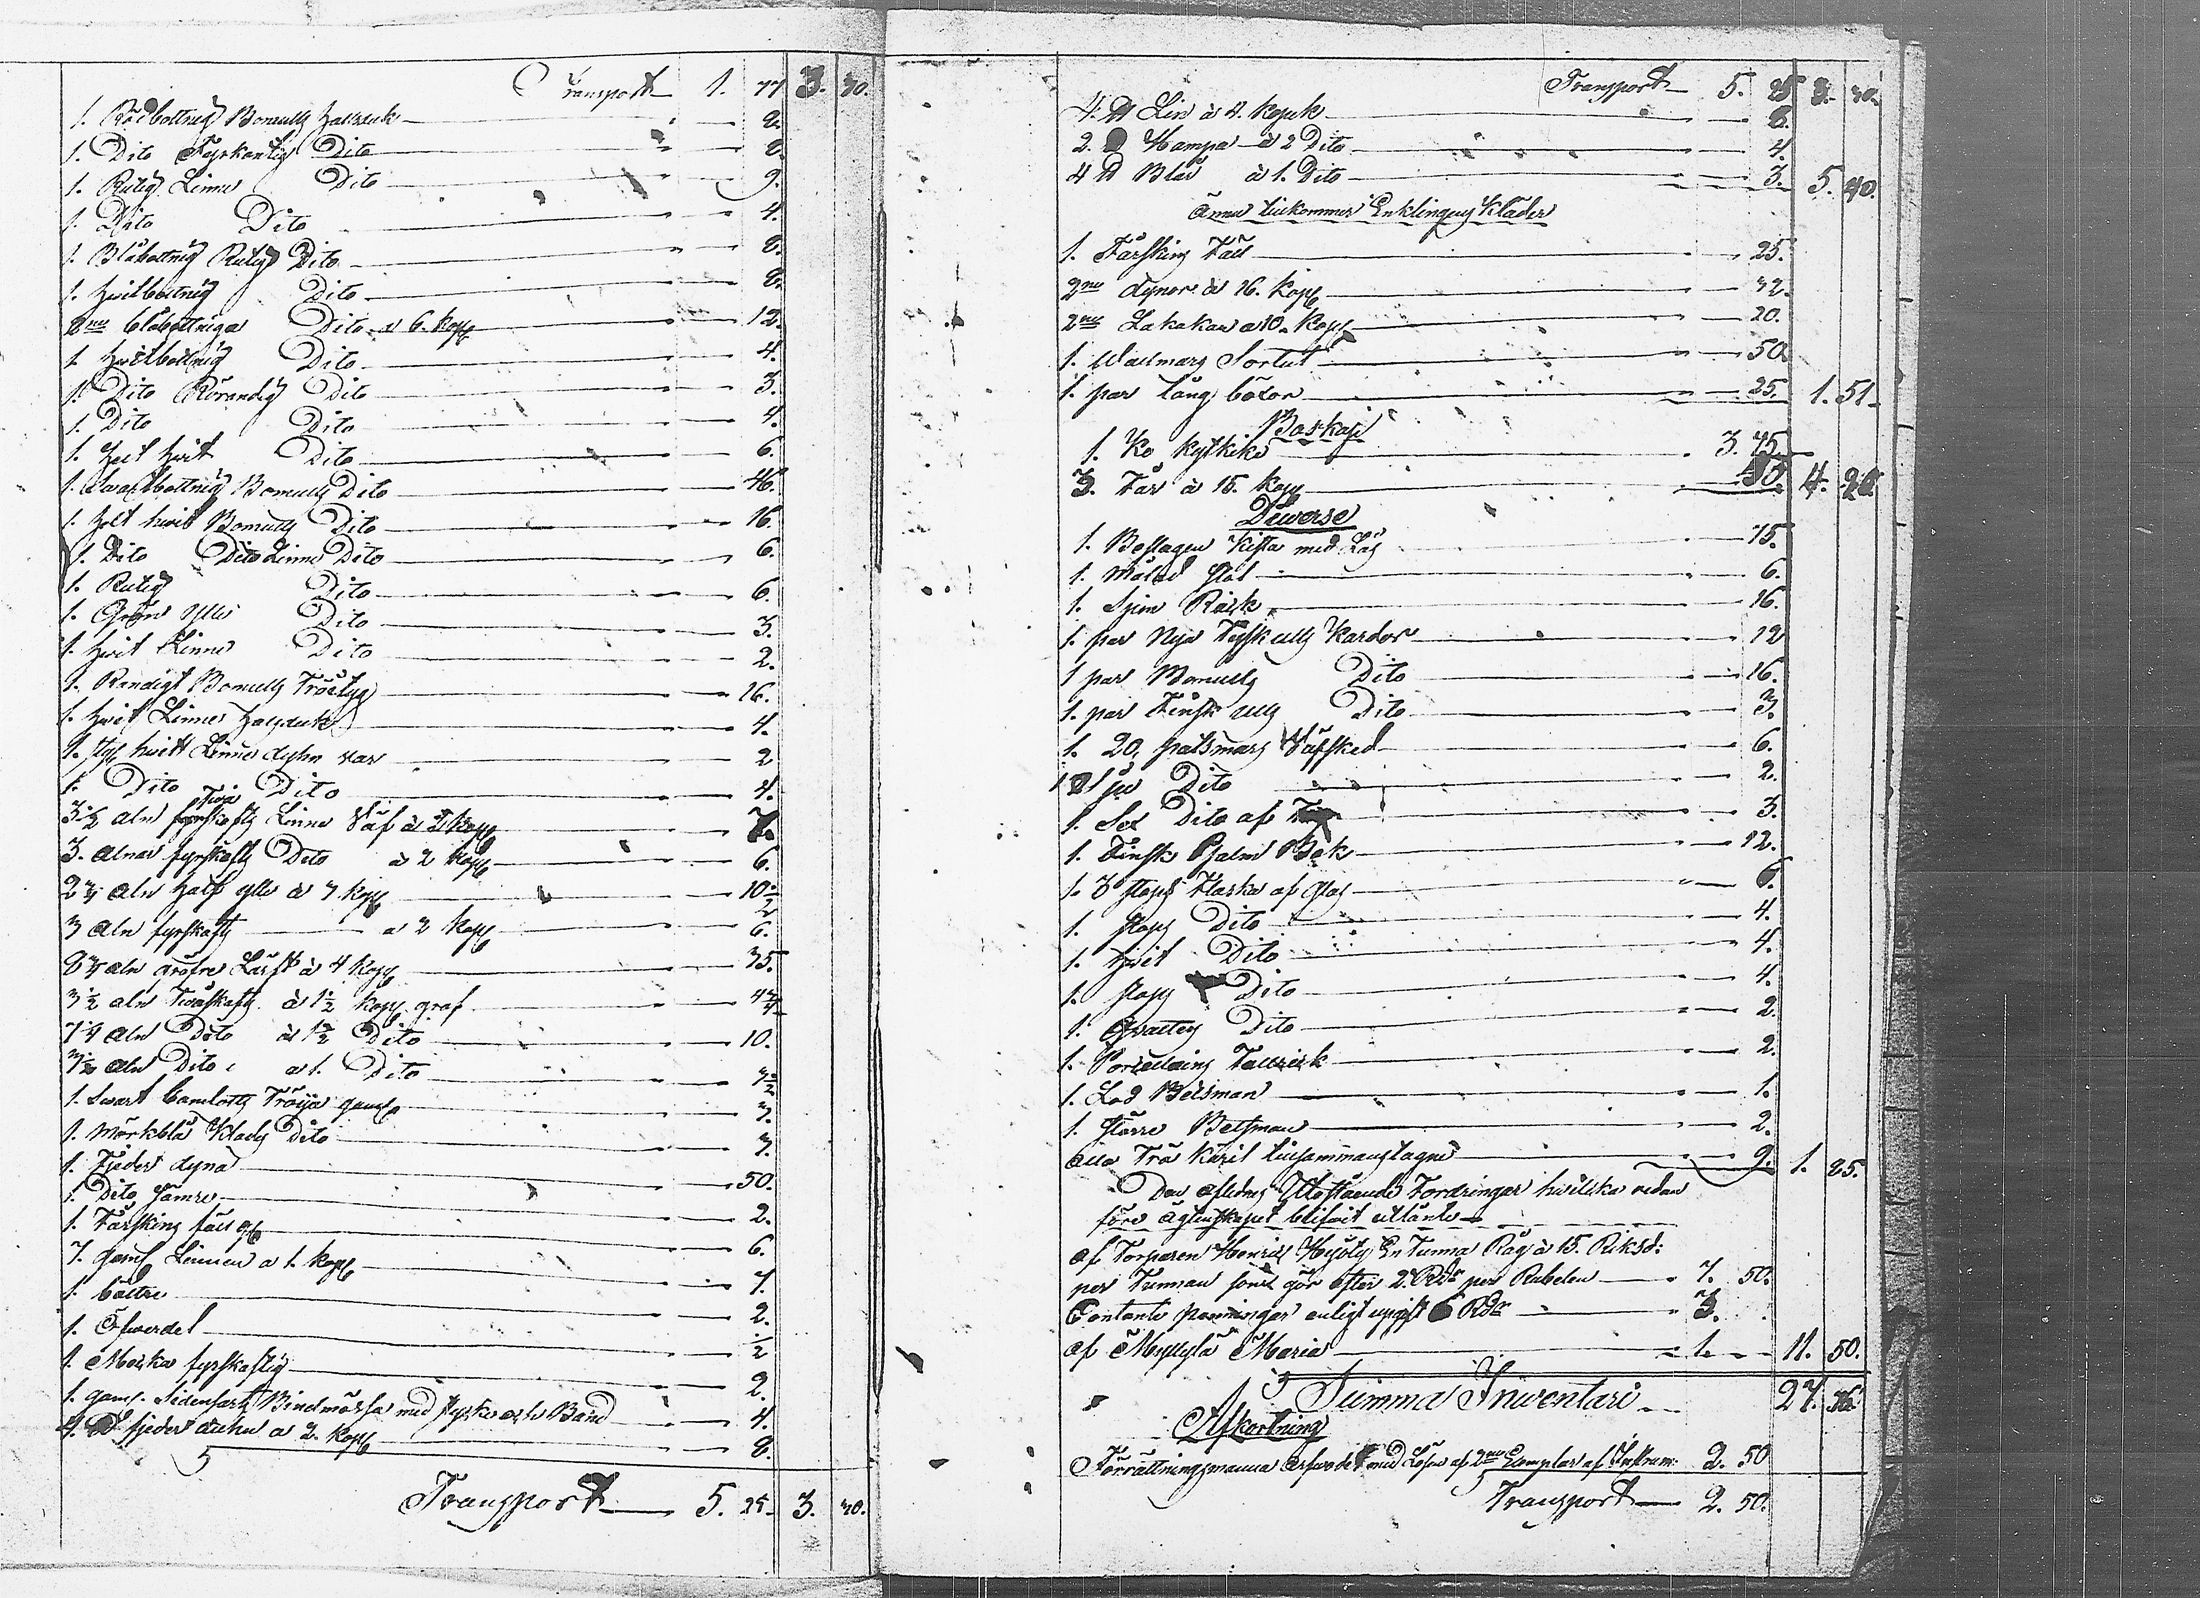 Transport 1. 77 3. 30.
1. Rödbottnig Bomulls halsduk 8.
1. Dito Fyrkantig Dito 8.
1. Rutig Linne Dito 9.
1. Dito Dito 4.
1. Blåbottnig Rutig Dito 8.
1. hvitbottnig Dito 8.
2ne blåbottniga Dito a 6. kop 12.
1. hvitbottnig Dito 4.
1. Dito Rörandig Dito 3.
1. Dito Dito 4.
1. helt hvit Dito 6.
1. Svartbottnig Bomulls Dito 46.
1. helt hvit Bomulls Dito 16.
1. Dito Dito Linne Dito 6.
1. Rutig Dito 6.
1. Grön ylle Dito 3.
1. hvit Linne Dito 2.
1. Randigt Bomulls Tröjtyg 16.
1. hvit Linne halsduk 4.
1. hvitt Linne dyhn var 2
1. Dito Dito 4.
3 1/2 aln Två skaftz Linne Väf à 2 kop 7.
3. alnar fyrskaftz Dito à 2 kop 6.
aln half ylle à kop 10 1/2
3 aln fyrskaftz a 2 kop 6.
8 3/4 aln gröfre Lärft à 4 kop 35.
3 1/2 aln Tvåskaftz à 1 1/2 kop graf
aln Dito à 1 1/2 Dito 10.
aln Dito a 1. Dito
1. Svart Camlotts Tröija gaml 3.
1. Mörkblå Klädes Dito 3.
1. Fjeder dyna 50.
1. Dito sämre 2.
1. Fårskins fäll gl 6.
7. gaml Linnen a 1. kop 7.
1. bältte 2.
1. Öfverdel 1/2
1. Merka fyrskaftig 2.
1. gaml. Sidensartz Bindmössa med stycke och Band 4.
4. fjeder duhn a 2. kop 8.
Transport 5. 25 3. 30.
Transport 5. 25 3. 30.
4. ℔ Lin à 4. kopek 6.
2. Hampa à 2 Dito 4.
4 ℔ Blår à 1. Dito 3. 5. 40.
Ännu tillkommer Enklingens Kläder
1. Fårskins Fäll 25.
2ne dynor à 16. kop 32.
2ne Lakakan a 10. kop 20.
1. Wallmars Sortut 50
1. par lång böxor 25. 1. 51
Boskap
1. Ko kytkike 3. 75
3. Får à 15. kop 4. 20
Diverse
1. Beslagen kista med Lås 75.
1. Målad stol 6.
1. Spin Råck 16.
1. par Nya Tysk ulls Kardor 12
1 par Bomulls Dito 16.
1. par Finsk ulls Dito 3.
1. 20, patsmars Väfsked 6.
1 Dito 2.
1. Sex Dito af 3.
1. Finsk Psalm Bok 12.
1. 3 stops Flaska af Glas 6.
1. stops Dito 4.
1. hvit Dito 4.
1. stops Dito 4.
1. Qvarters Dito 2.
1. Porcellains Tallrick 2.
1. Lod Betsman 1.
1. större Betsman 2.
Alla Trä käril tillsammanstagne 9. 1. 85.
Den aflednes Utestående Fordringar hvilcka redan
före ägtenskapet blifvit utlånte
Af Torparen Henric En Tunna Råg à 15. Riksd:
per Tunnan som gör efter 2. Rdr per Rubelen 7. 50.
Contante penningar enligt upgift 6 Rdr 3.
af Myllylä Maria 1. 11. 50.
Summa Inventarii 27. 76.
Afkortning
Förrättningsmanna Arfvodet med Lösen af 2ne Exemplar af Instrum: 2. 50
Transport 2. 50.